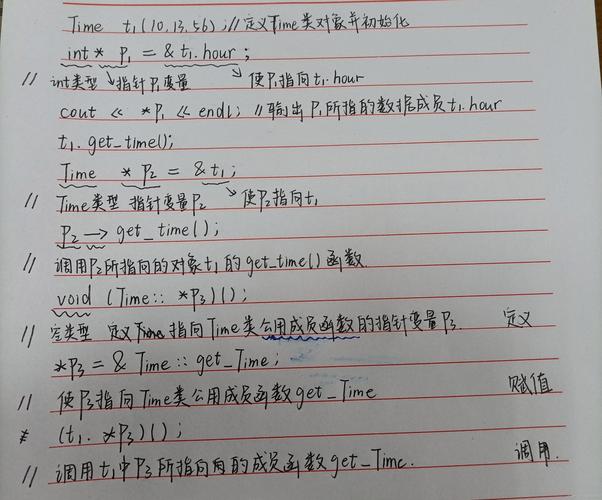 Time t₁(10,13,56); // 定义Time类对象并初始化
int* p₁ = & t₁.hour;
// int类型 指针p₁变量 使p₁指向t₁.hour
cout << *p₁ << endl; // 输出p₁所指的数据成员t₁.hour
t₁.get_time();
Time *p₂ = &t₁;
// Time类型 指针变量p₂ 使p₂指向t₁
p₂ → get_time();
// 调用p₂所指向的对象t₁的get_time()函数
void (Time:: *p₃)();
// 空类型 定义Time 指向Time类公用成员函数的指针变量p₃. 定义
*p₃ = & Time :: get_Time;
// 使p₃指向Time类公用成员函数get_Time 赋值
(t₁. *p₃)();
// 调用t₁中p₃所指向的成员函数get_Time. 调用.